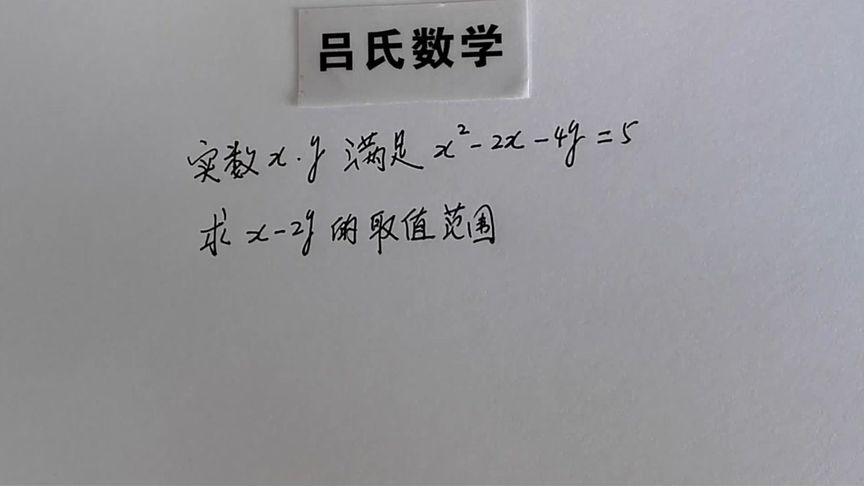 吕氏数学
实数x.y满足x²-2x-4y=5
求x-2y的取值范围